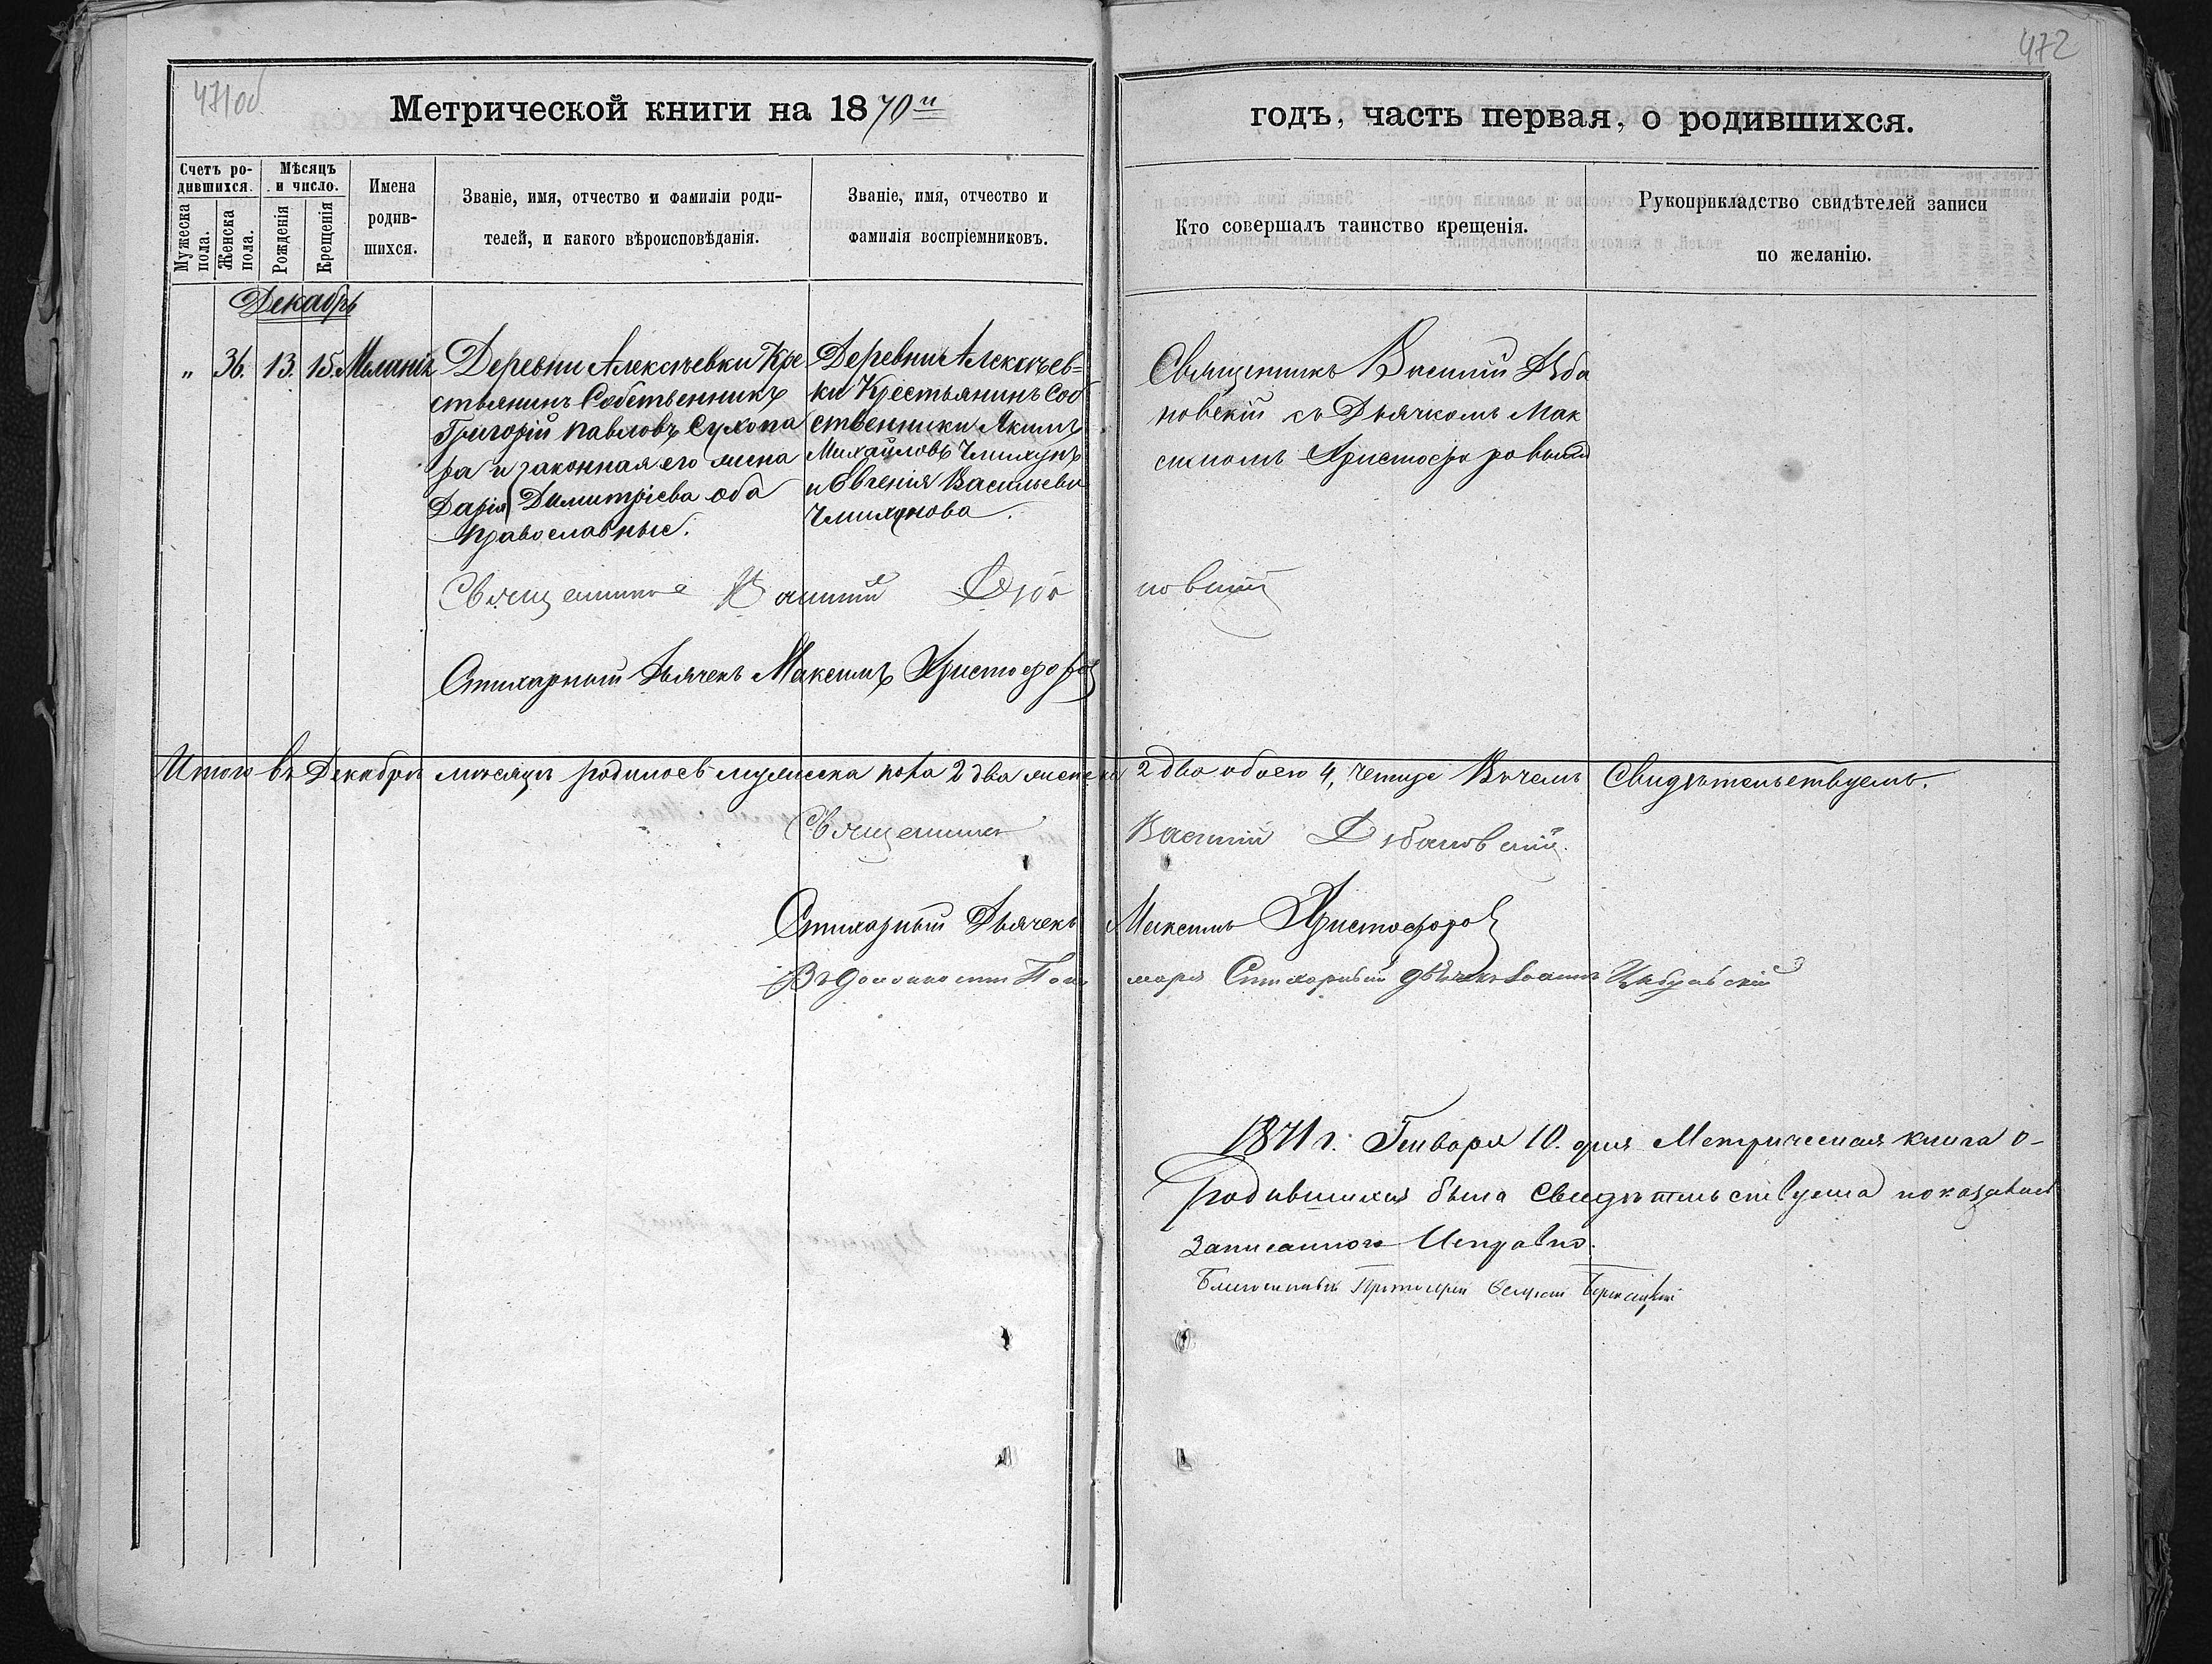 471об.
472
Метрической книги на 1870й
годъ, часть первая, о родившихся.
Счетъ ро-
дившихся.
Мѣсяцъ
и число.
Мужеска
пола.
Женска
пола.
Рожденія
Крещенія
Имена
родив-
шихся.
Званіе, имя, отчество и фамиліи роди-
телей, и какого вѣроисповѣданія.
Званіе, имя, отчество и
фамилія воспріемниковъ.
Кто совершалъ таинство крещенія.
Рукоприкладство свидѣтелей записи
по желанію.
Декабрь
„ 36. 13. 15. Меланія
Деревни Алексѣевки Кре
стьянинъ Собственникъ
Григорій Павловъ Сухопа
ра и законная его жена
Дарія Димитріева оба
православные.
Деревни Алексѣев=
ки Крестьянинъ Соб
ственники Якимъ
Михайловъ
и Евгенія Васильева
Священникъ Василій
новскій съ Дьячкомъ Мак
симомъ Христофоровымъ
Священникъ Василій
новскій
Стихарный Дьячекъ Максимъ Христофоровъ
Итого въ Декабрѣ мѣсяцѣ родилось мужеска пола 2 два женска 2 два обоего 4, четыре Въ чемъ Свидѣтельствуемъ.
Священникъ Василій
Стихарный Дьячекъ Максимъ Христофоровъ
Въ должности Пономаря Стихарный дьячекъ Іоаннъ
1871 г. Генваря 10. дня Метрическая книга о-
родившихся была Свидѣтельствуема показалась
Записанною Исправно.
Благочинный Протоіерей